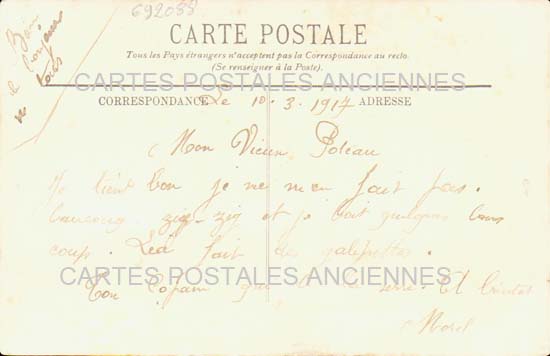 692088
CARTE POSTALE
Tous les Pays étrangers n'acceptent pas la Correspondance au recto.
(Se renseigner à la Poste).
CARTES POSTALES ANCIENNES
CORRESPONDANCE Le 10.3.1917 ADRESSE
Mon Vieux Poteau
tient bon je ne m'en fait pas.
beaucoup zig-zig et je boit quelques bons
coup. Léa fait des galipettes.
CARTES POSTALES ANCIENNES
Ton Copain qui te la serre. Et